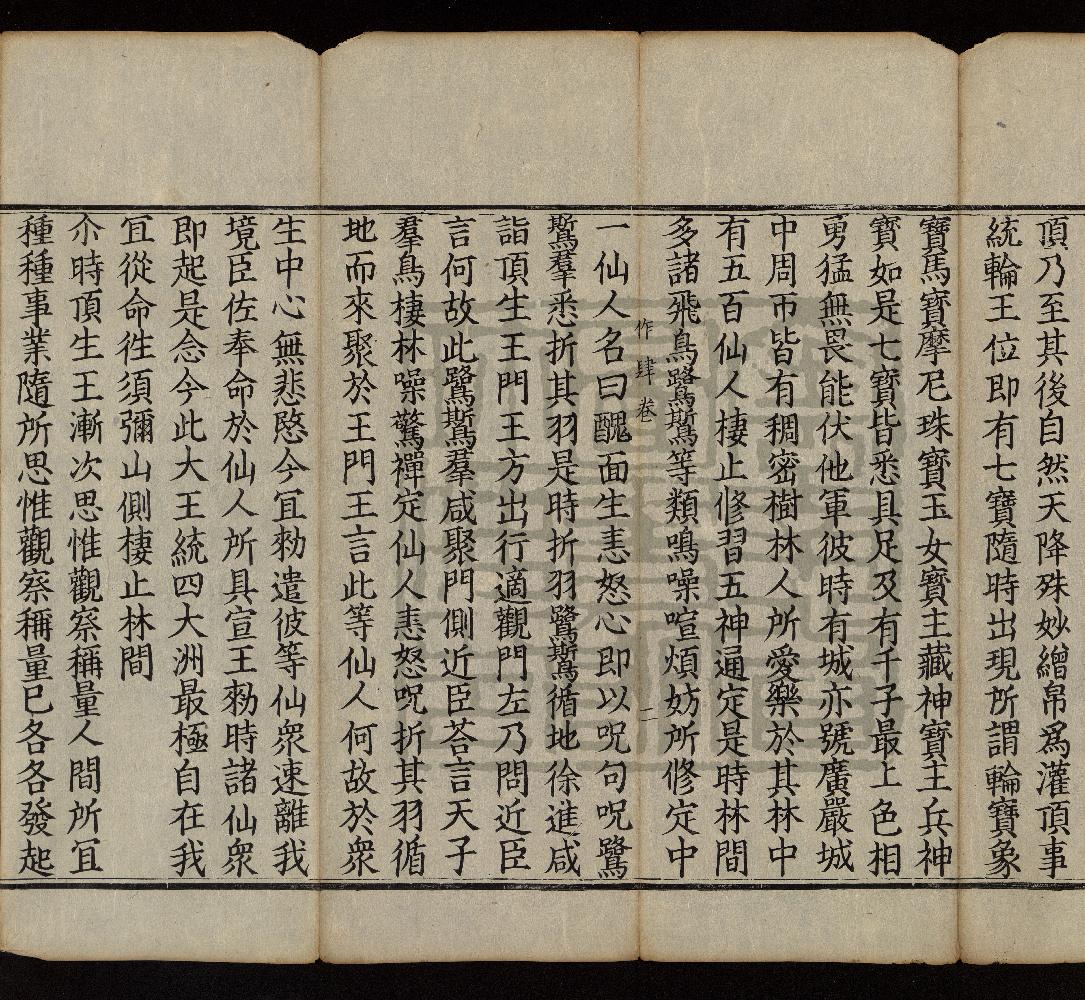 頂乃至其後自然天降殊妙繒帛爲灌頂事
統輪王位即有七寶隨時出現所謂輪寶象
寶馬寶摩尼珠寶玉女寶主藏神寶主兵神
寶如是七寶皆悉具足及有千子最上色相
勇猛無畏能伏他軍彼時有城亦號廣嚴城
中周帀皆有稠密樹林人所愛樂於其林中
有五百仙人棲止修習五神通定是時林間
多諸飛鳥鷺鷥等類鳴噪喧煩妨所修定中
作肆卷 二
一仙人名曰醜面生恚怒心即以呪句呪鷺
鷥羣悉折其羽是時折羽鷺鷥循地徐進咸
詣頂生王門王方出行適觀門左乃問近臣
言何故此鷺鷥羣咸聚門側近臣荅言天子
羣鳥棲林噪驚禪定仙人恚怒呪折其羽循
地而來聚於王門王言此等仙人何故於衆
生中心無悲愍今冝勑遣彼等仙衆速離我
境臣佐奉命於仙人所具宣王勑時諸仙衆
即起是念今此大王統四大洲最極自在我
冝從命徃須彌山側棲止林間
尒時頂生王漸次思惟觀察稱量人間所冝
種種事業隨所思惟觀察稱量巳各各發起